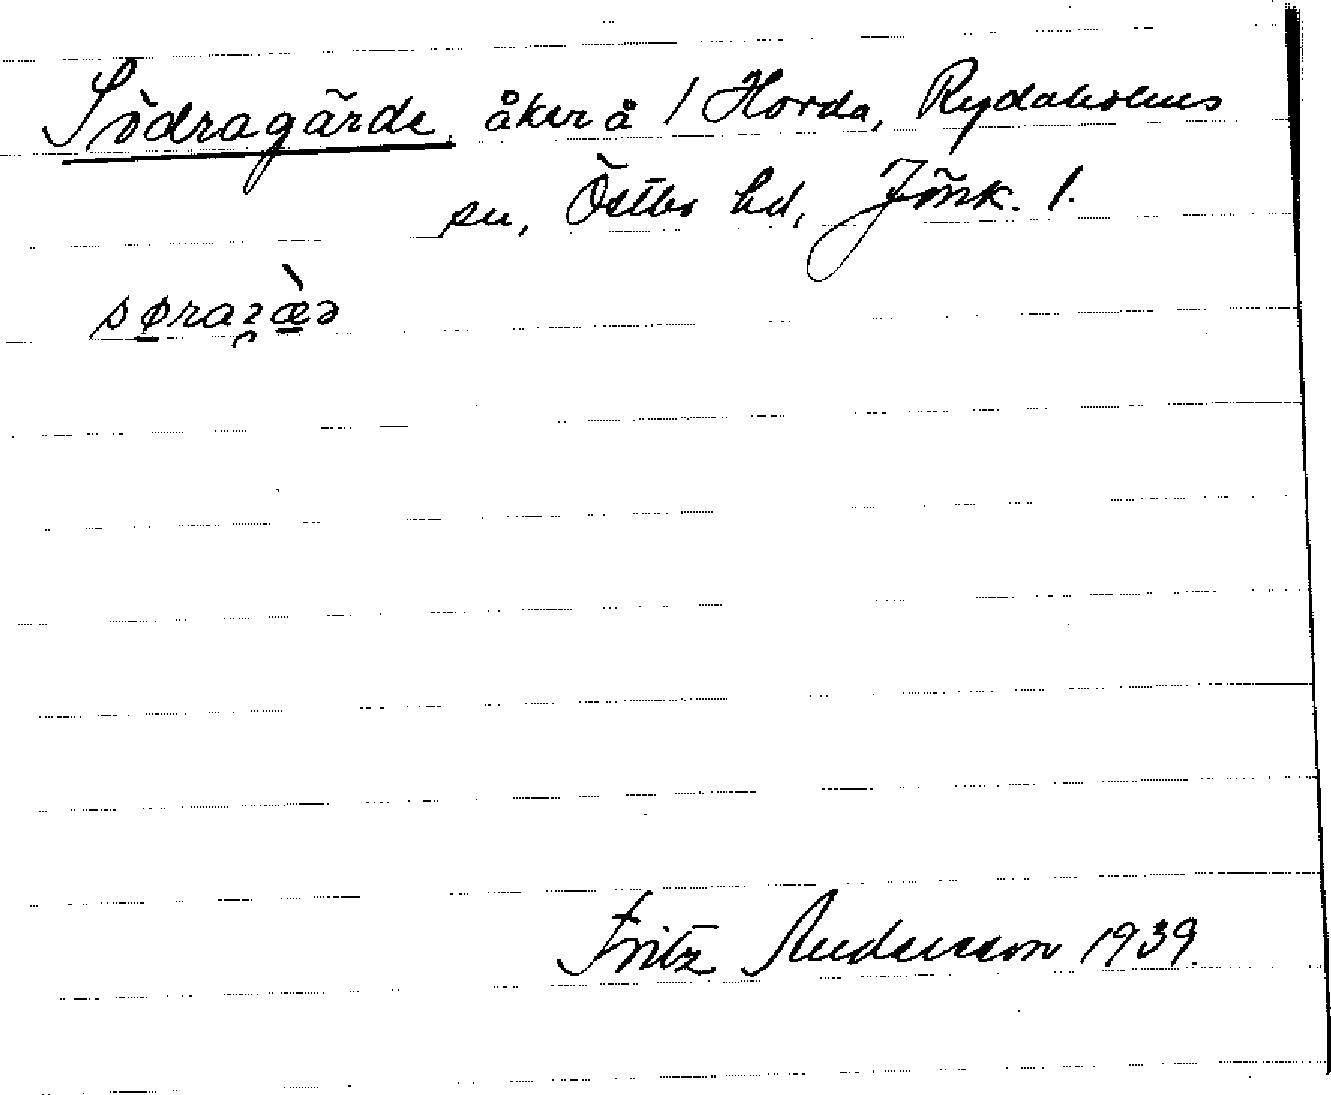 Södragärde, åker å 1 Horda, Rydaholms
sn, Östbo hd, Jönk. l.
søraʒæ̀ə
Fritz Andersson 1939.